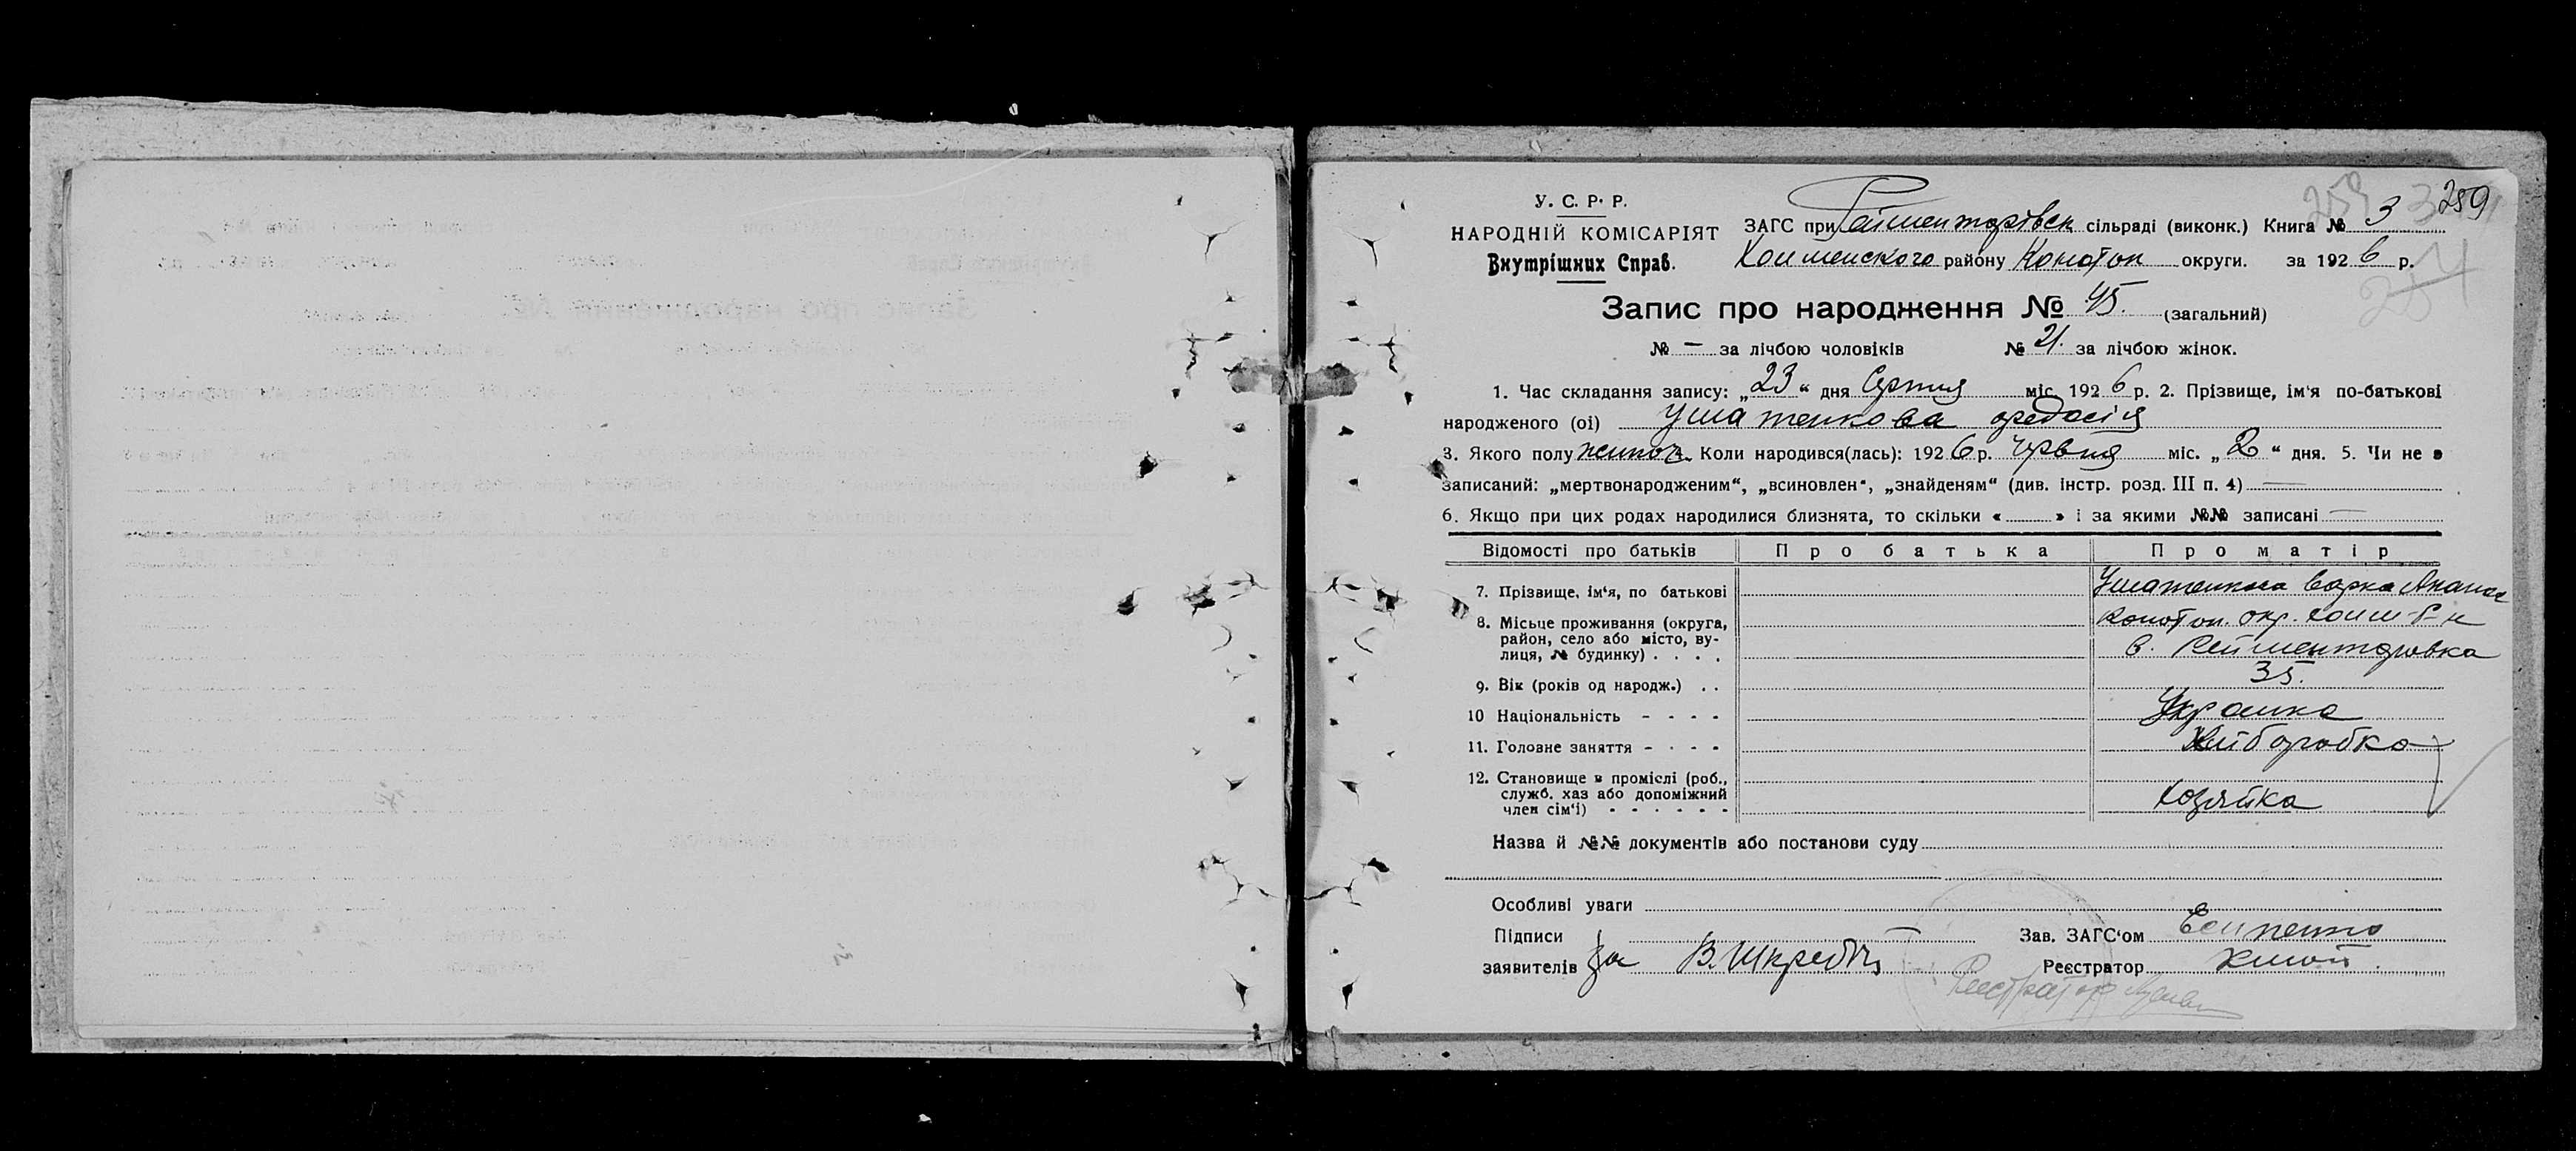 259 3 289
У. С. Р. Р.
НАРОДНІЙ КОМІСАРІЯТ
Внутрішних Справ.
ЗАГС при Рейментарівск сільраді (виконк.) Книга № 3
району Конотоп округи. за 1926 р.
Запис про народження № 45. (загальний)
№ — за лічбою чоловіків № 21. за лічбою жінок.
1. Час складання запису: „23“ дня Серпня міс. 1926 р. 2. Прізвище, ім‘я по-батькові
народженого (ої) Ушатенкова Федосія
3. Якого полу жіноч. Коли народився(лась): 1926 р. Червня міс. „2“ дня. 5. Чи не є
записаний: „мертвонародженим“, „всиновлен“, „знайденям“ (див. інстр. розд. III п. 4) —
6. Якщо при цих родах народилися близнята, то скільки « » і за якими №№ записані —
Відомості про батьків Про батька Про матір
7. Прізвище, ім‘я, по батькові Ушатенкова Варка
8. Місьце проживання (округа, Конотоп. окр. р-н
район, село або місто, ву-
лиця, № будинку) . . . . в. Рейментаровка
9. Вік (років од народж.) . . 35.
10 Національність - - - - Украинка
11. Головне заняття - - - - Хлиборобка
12. Становище в проміслі (роб.,
служб. хаз або допоміжний
член сім‘ї) - - - - - - Хозяйка
Назва й №№ документів або постанови суду
Особливі уваги
Підписи
заявителів За В. Шкред
Зав. ЗАГС‘ом Есипенко
Реєстратор
Реєстратор